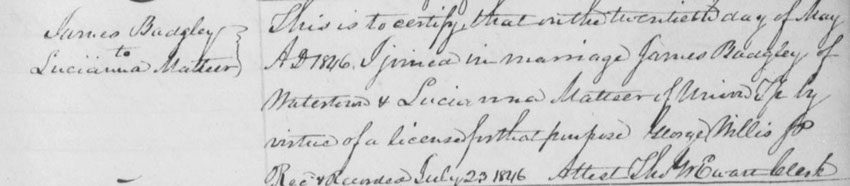 James Badgley
to
Lucianna Matteer
This is to certify, that on the twentieth day of May
A D 1846. I joined in marriage James Badgley, of
Watertown & Lucianna Matteer of Union Tp by
virtue of a license for that purpose George Willis JP
Rec'd & Recorded July 23 1846 Attest Thos W Ewart Clerk